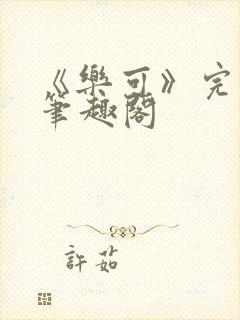 《樂可》完
筆趣閣
許茹